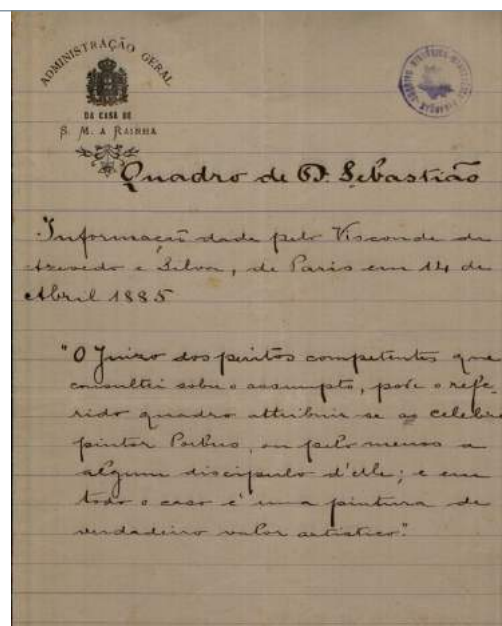 ADMINISTRAÇÃO GERAL
DA CASA DE
S. M. A RAINHA
Quadro de D. Sebastião
Informação dada pelo Visconde de
Azevedo e Silva, de Paris em 14 de
Abril 1885
"O Juizo dos peritos competentes que
consultei sobre o assumpto, pode o refe-
rido quadro attribuir-se ao celebre
pintor Porbus, ou pelo menos a
algum discipulo d'elle; e em
todo o caso é uma pintura de
verdadeiro valor artistico".